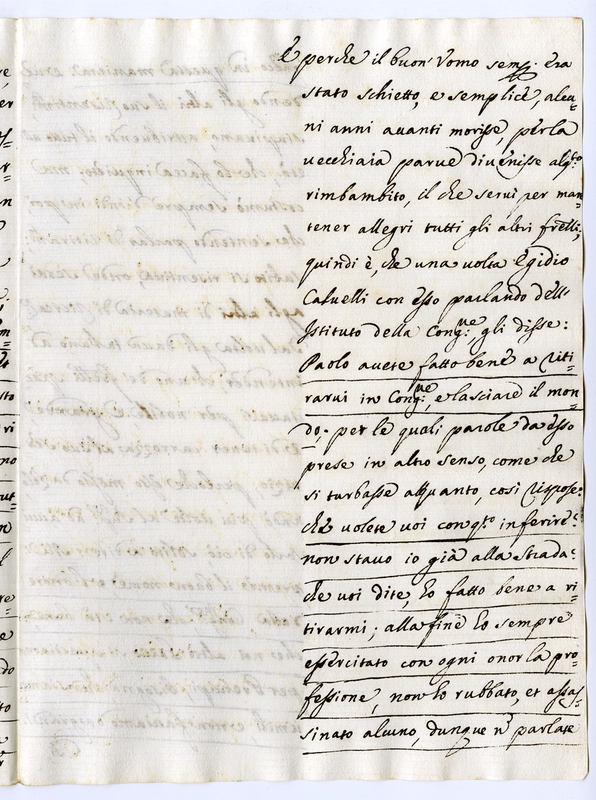 E perche il buon' Vomo semp: era
stato schietto, e semplice, alcu=
ni anni auanti morisse, per la
uecchiaia parue diuenisse alq.to
rimbambito, il che seruì per man=
tener allegri tutti gli altri frelli,
quindi è, che una uolta Egidio
Caluelli con esso parlando dell'
Istituto della Cong:ne, gli disse:
Paolo auete fatto bene a riti=
rarui in Cong:ne, e lasciare il mon=
do; per le quali parole da esso
prese in altro senso, come che
si turbasse alquanto, così rispose:
che uolete uoi con q.to inferire?
non stauo io già alla strada?
che uoi dite, ho fatto bene a ri=
tirarmi; alla fine ho sempre
essercitato con ogni onor la pro=
fessione, non ho rubbato, et assas=
sinato alcuno, dunque n' parlate